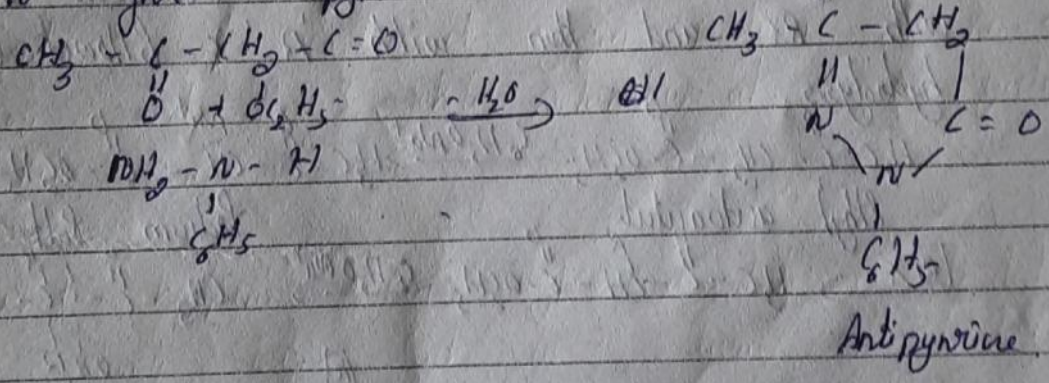 CH3 - C - CH2 - C = O
O + OC2H5
NH2 - N - H
C6H5
- H2O
CH3 - C - CH2
N C = O
N
C6H5
Antipyrine